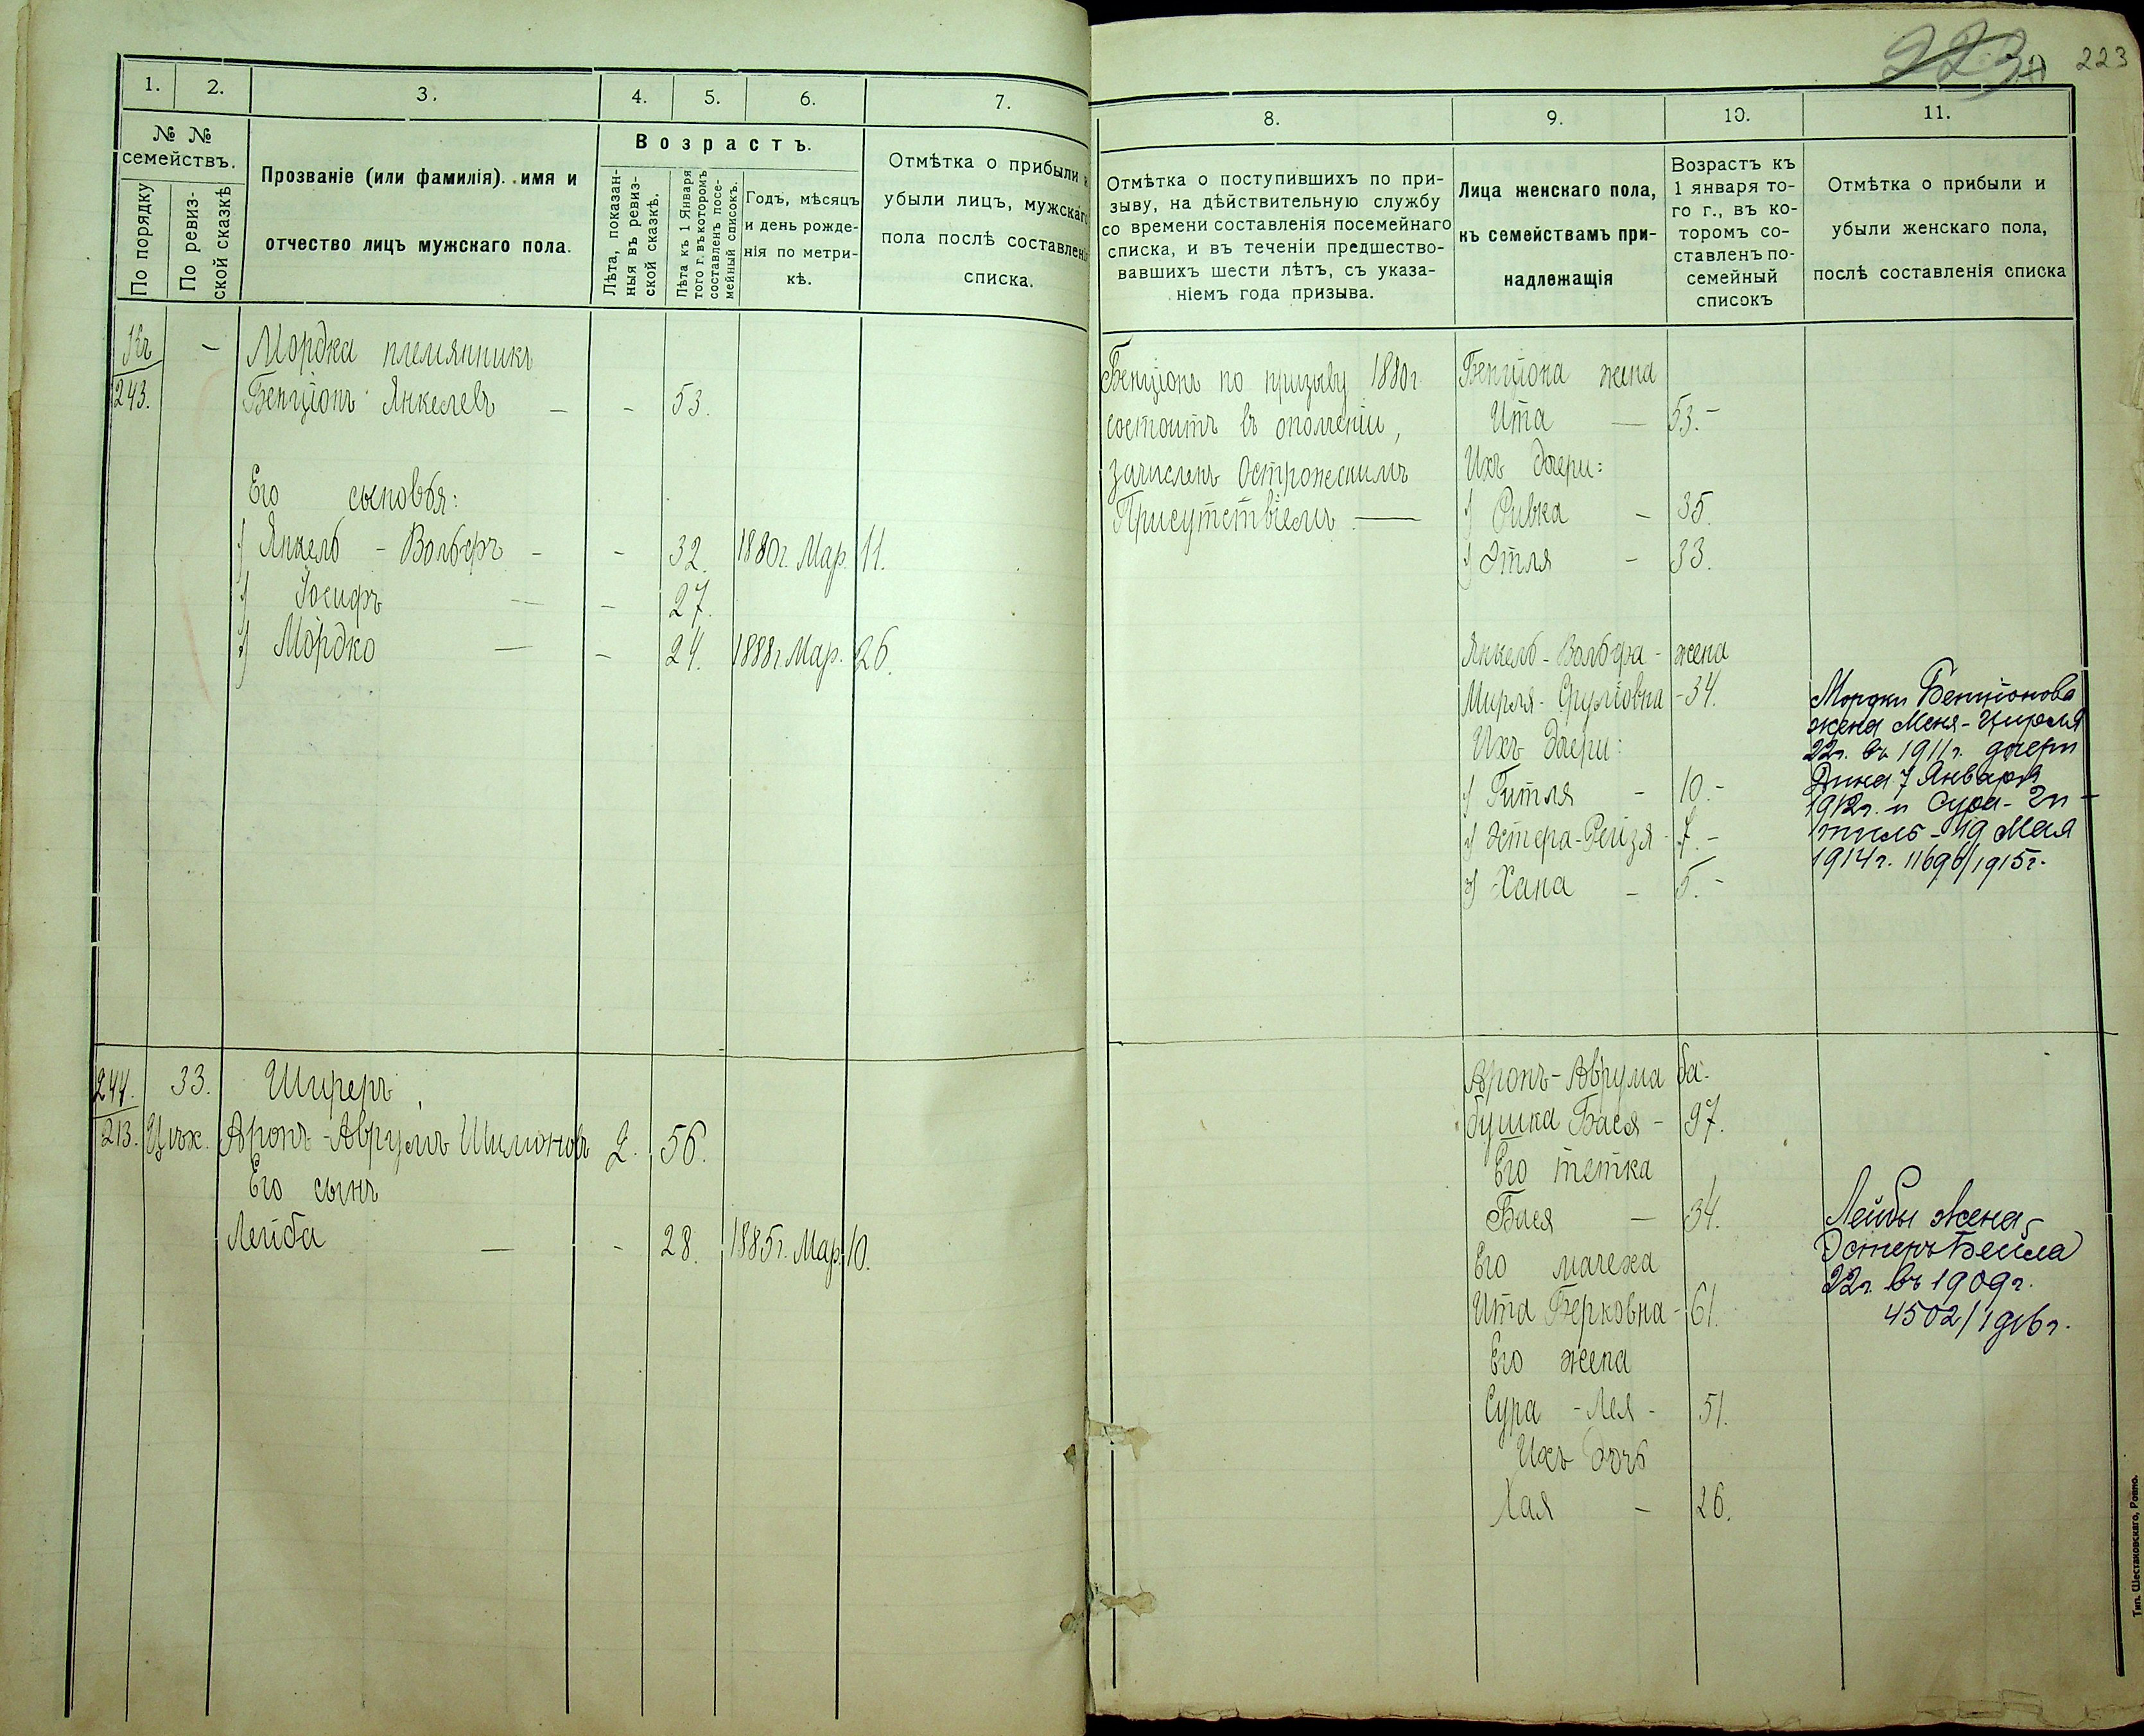 223
223
1. 2. 3. 4. 5. 6. 7.
№ №
семействъ.
По порядку
По ревиз-
ской сказкѣ
Прозваніе (или фамилія). имя и
отчество лицъ мужскаго пола.
Возрастъ.
Лѣта, показан-
ныя въ ревиз-
ской сказкѣ.
Лѣта къ 1 Января
того г. въ которомъ
составленъ посе-
мейный списокъ.
Годъ, мѣсяцъ
и день рожде-
нія по метри-
кѣ.
Отмѣтка о прибыли и
убыли лицъ, мужскаго
пола послѣ составленія
списка.
Къ — Мордка племянникъ
243. Бенціонъ Янкелевъ — - 53.
Его сыновья:
1) Янкель - Вольфъ - - 32. 1880г. Мар. 11.
2) Іосифъ — - 27.
3) Мордко — - 24. 1888г. Мар. 26.
244. 33. Шиферъ
213. Цѣх. Аронъ-Аврумъ Шимоновъ 2. 56.
Его сынъ
Лейба — - 28. 1885г. Мар. 10.
8. 9. 10. 11.
Отмѣтка о поступившихъ по при-
зыву, на дѣйствительную службу
со времени составленія посемейнаго
списка, и въ теченіи предшество-
вавшихъ шести лѣтъ, съ указа-
ніемъ года призыва.
Лица женскаго пола,
къ семействамъ при-
надлежащія
Возрастъ къ
1 января то-
го г., въ ко-
торомъ со-
ставленъ по-
семейный
списокъ
Отмѣтка о прибыли и
убыли женскаго пола,
послѣ составленія списка
Бенціонъ по призыву 1880г
состоитъ въ ополченіи,
зачисленъ Острожскимъ
Присутствіемъ —
Бенціона жена
Ита — 53.-
Ихъ дочери:
1) Ривка - 35.
2) Этля - 33.
Янкель-Вольфа - жена
Мирля-Сруліовна - 34.
Ихъ дочери:
1) Гитля - 10.-
2) Эстера-Рейзя - 7.-
3) Хана - 5.-
Мордки Бенціонова
жена Меня-Цирля
22г. въ 1911г. дочери
Дина 7 Января
1912г. и Сура-Ги-
тель - 19 Мая
1914г. 11696/1915г.
Аронъ-Аврума ба-
бушка Бася - 97.
Его тетка
Бася — 34.
Его мачеха
Ита Берковна - 61.
Его жена
Сура - Лея - 51.
Ихъ дочь
Хая - 26.
Лейбы жена-
Эстеръ Бейла
22г. въ 1909г.
4502/1916г.
Тип. Шестаковскаго, Ровно.